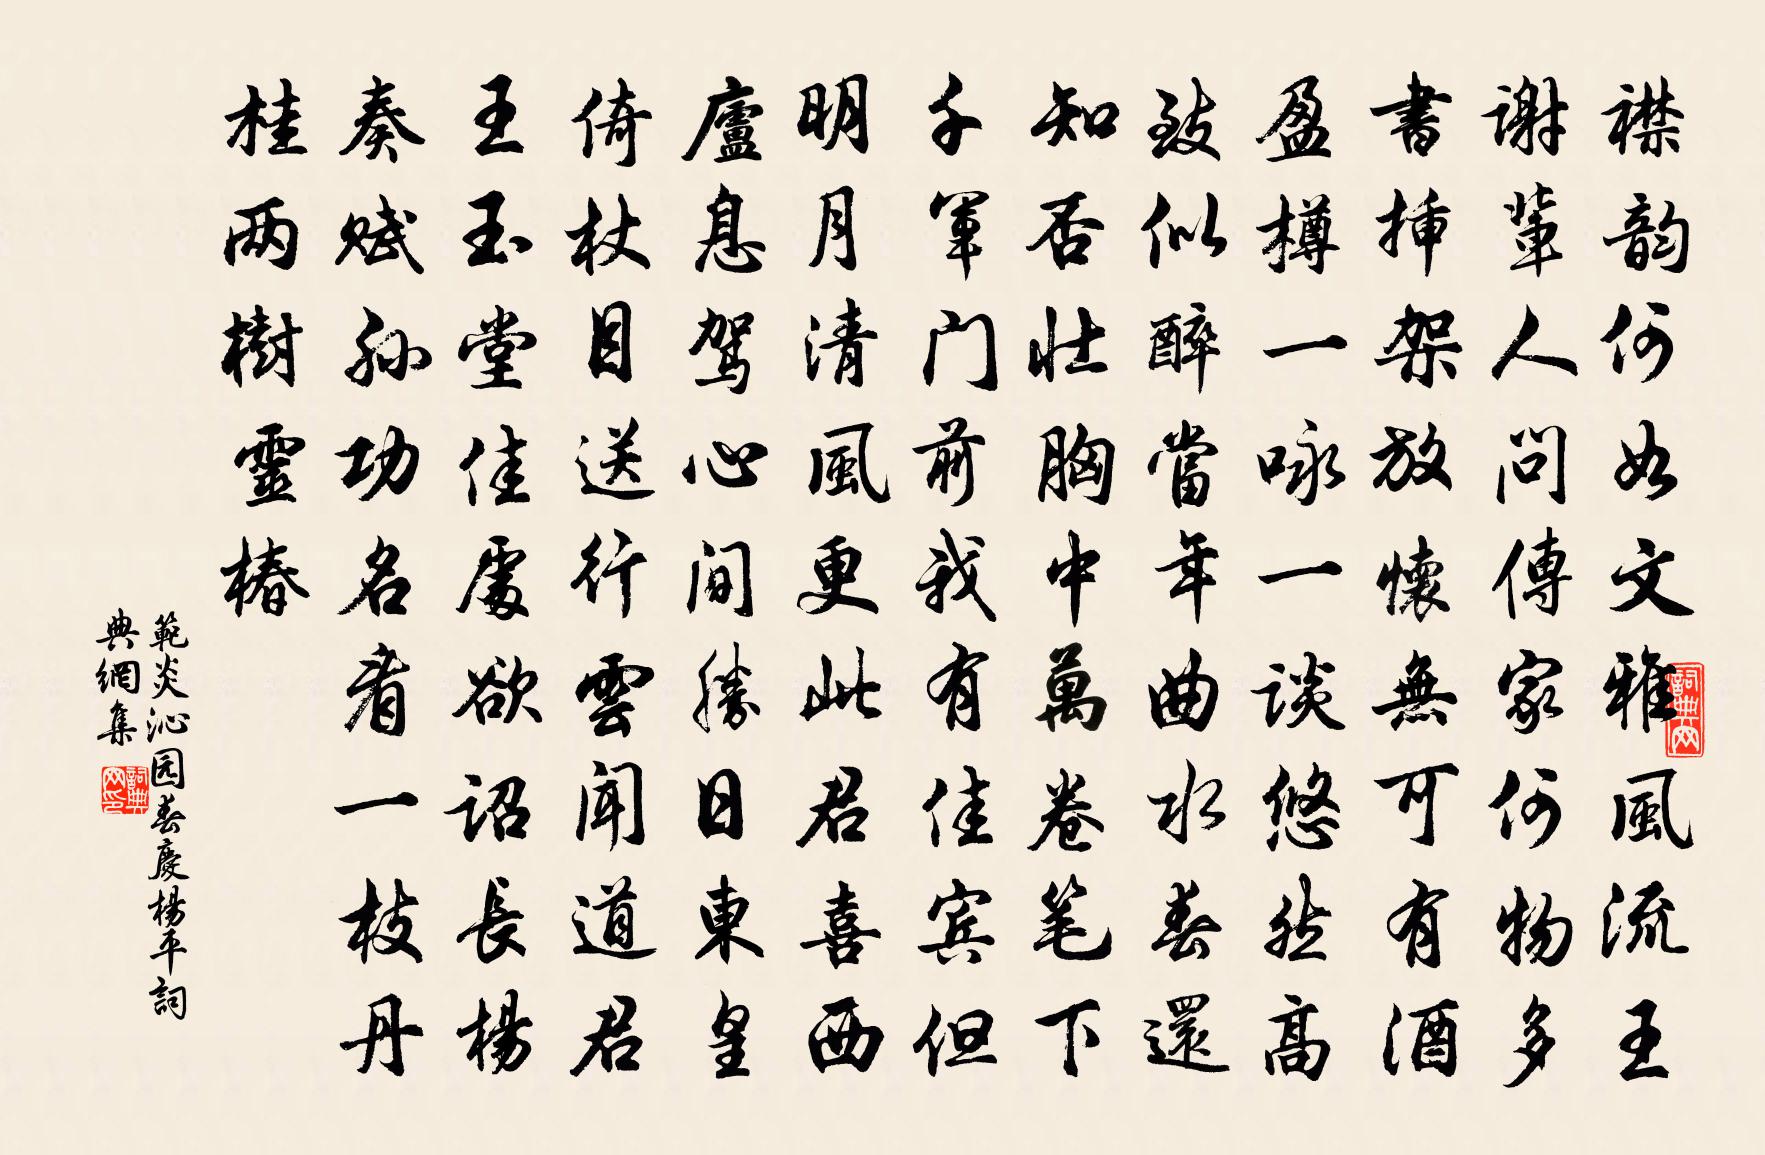 襟韵何如文雅風流王
謝輩人問傳家何物多
書插架放懷無可有酒
盈樽一咏一談悠然高
致似醉當年曲水春還
知否壯胸中萬卷笔下
千軍门前我有佳宾但
明月清風更此君喜西
廬息駕心间勝日東皇
倚杖目送行雲闻道君
王玉堂佳處欲诏長楊
奏赋孙功名看一枝丹
桂两樹靈椿
範炎沁园春慶楊平詞
典網集
詞典网
詞典网印